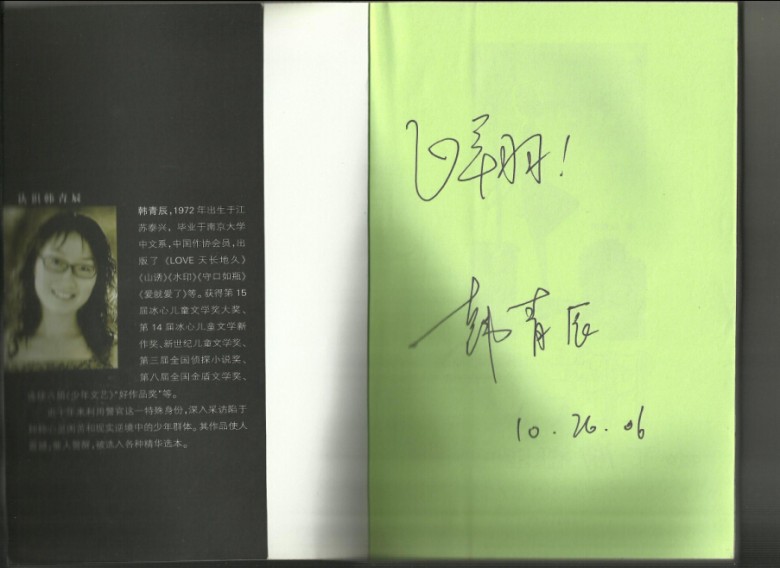 认识韩青辰
韩青辰，1972年出生于江
苏泰兴，毕业于南京大学
中文系，中国作协会员，出
版了《LOVE天长地久》
《山诱》《水印》《守口如瓶》
《爱就爱了》等。获得第15
届冰心儿童文学奖大奖、
第14届冰心儿童文学新
作奖、新世纪儿童文学奖、
第三届全国侦探小说奖、
第八届全国金盾文学奖、
《少年文艺》"好作品奖"等。
十年来利用警官这一特殊身份，深入采访陷于
和现实逆境中的少年群体。其作品使人
，被选入各种精华选本。
韩青辰
10.26.06